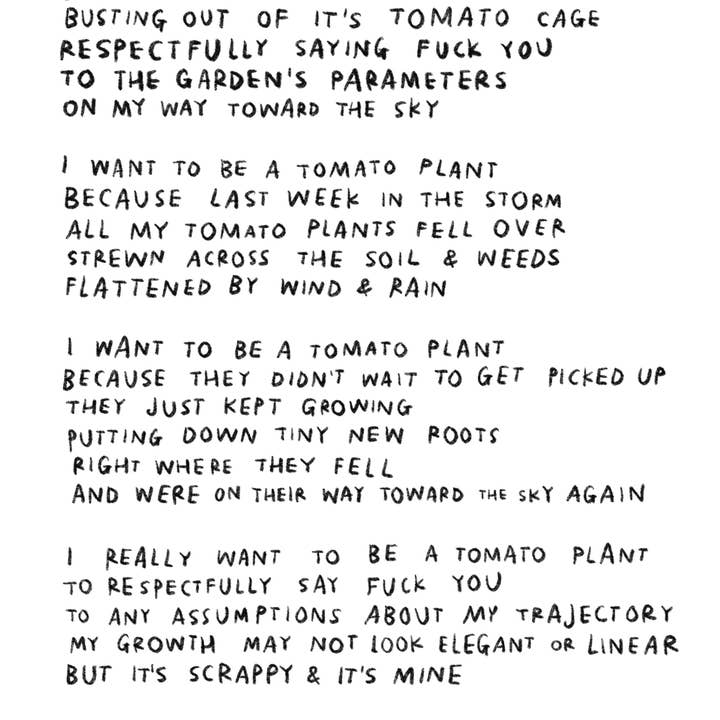 BUSTING OUT OF IT'S TOMATO CAGE
RESPECTFULLY SAYING FUCK YOU
TO THE GARDEN'S PARAMETERS
ON MY WAY TOWARD THE SKY
I WANT TO BE A TOMATO PLANT
BECAUSE LAST WEEK IN THE STORM
ALL MY TOMATO PLANTS FELL OVER
STREWN ACROSS THE SOIL & WEEDS
FLATTENED BY WIND & RAIN
I WANT TO BE A TOMATO PLANT
BECAUSE THEY DIDN'T WAIT TO GET PICKED UP
THEY JUST KEPT GROWING
PUTTING DOWN TINY NEW ROOTS
RIGHT WHERE THEY FELL
AND WERE ON THEIR WAY TOWARD THE SKY AGAIN
I REALLY WANT TO BE A TOMATO PLANT
TO RESPECTFULLY SAY FUCK YOU
TO ANY ASSUMPTIONS ABOUT MY TRAJECTORY
MY GROWTH MAY NOT LOOK ELEGANT OR LINEAR
BUT IT'S SCRAPPY & IT'S MINE